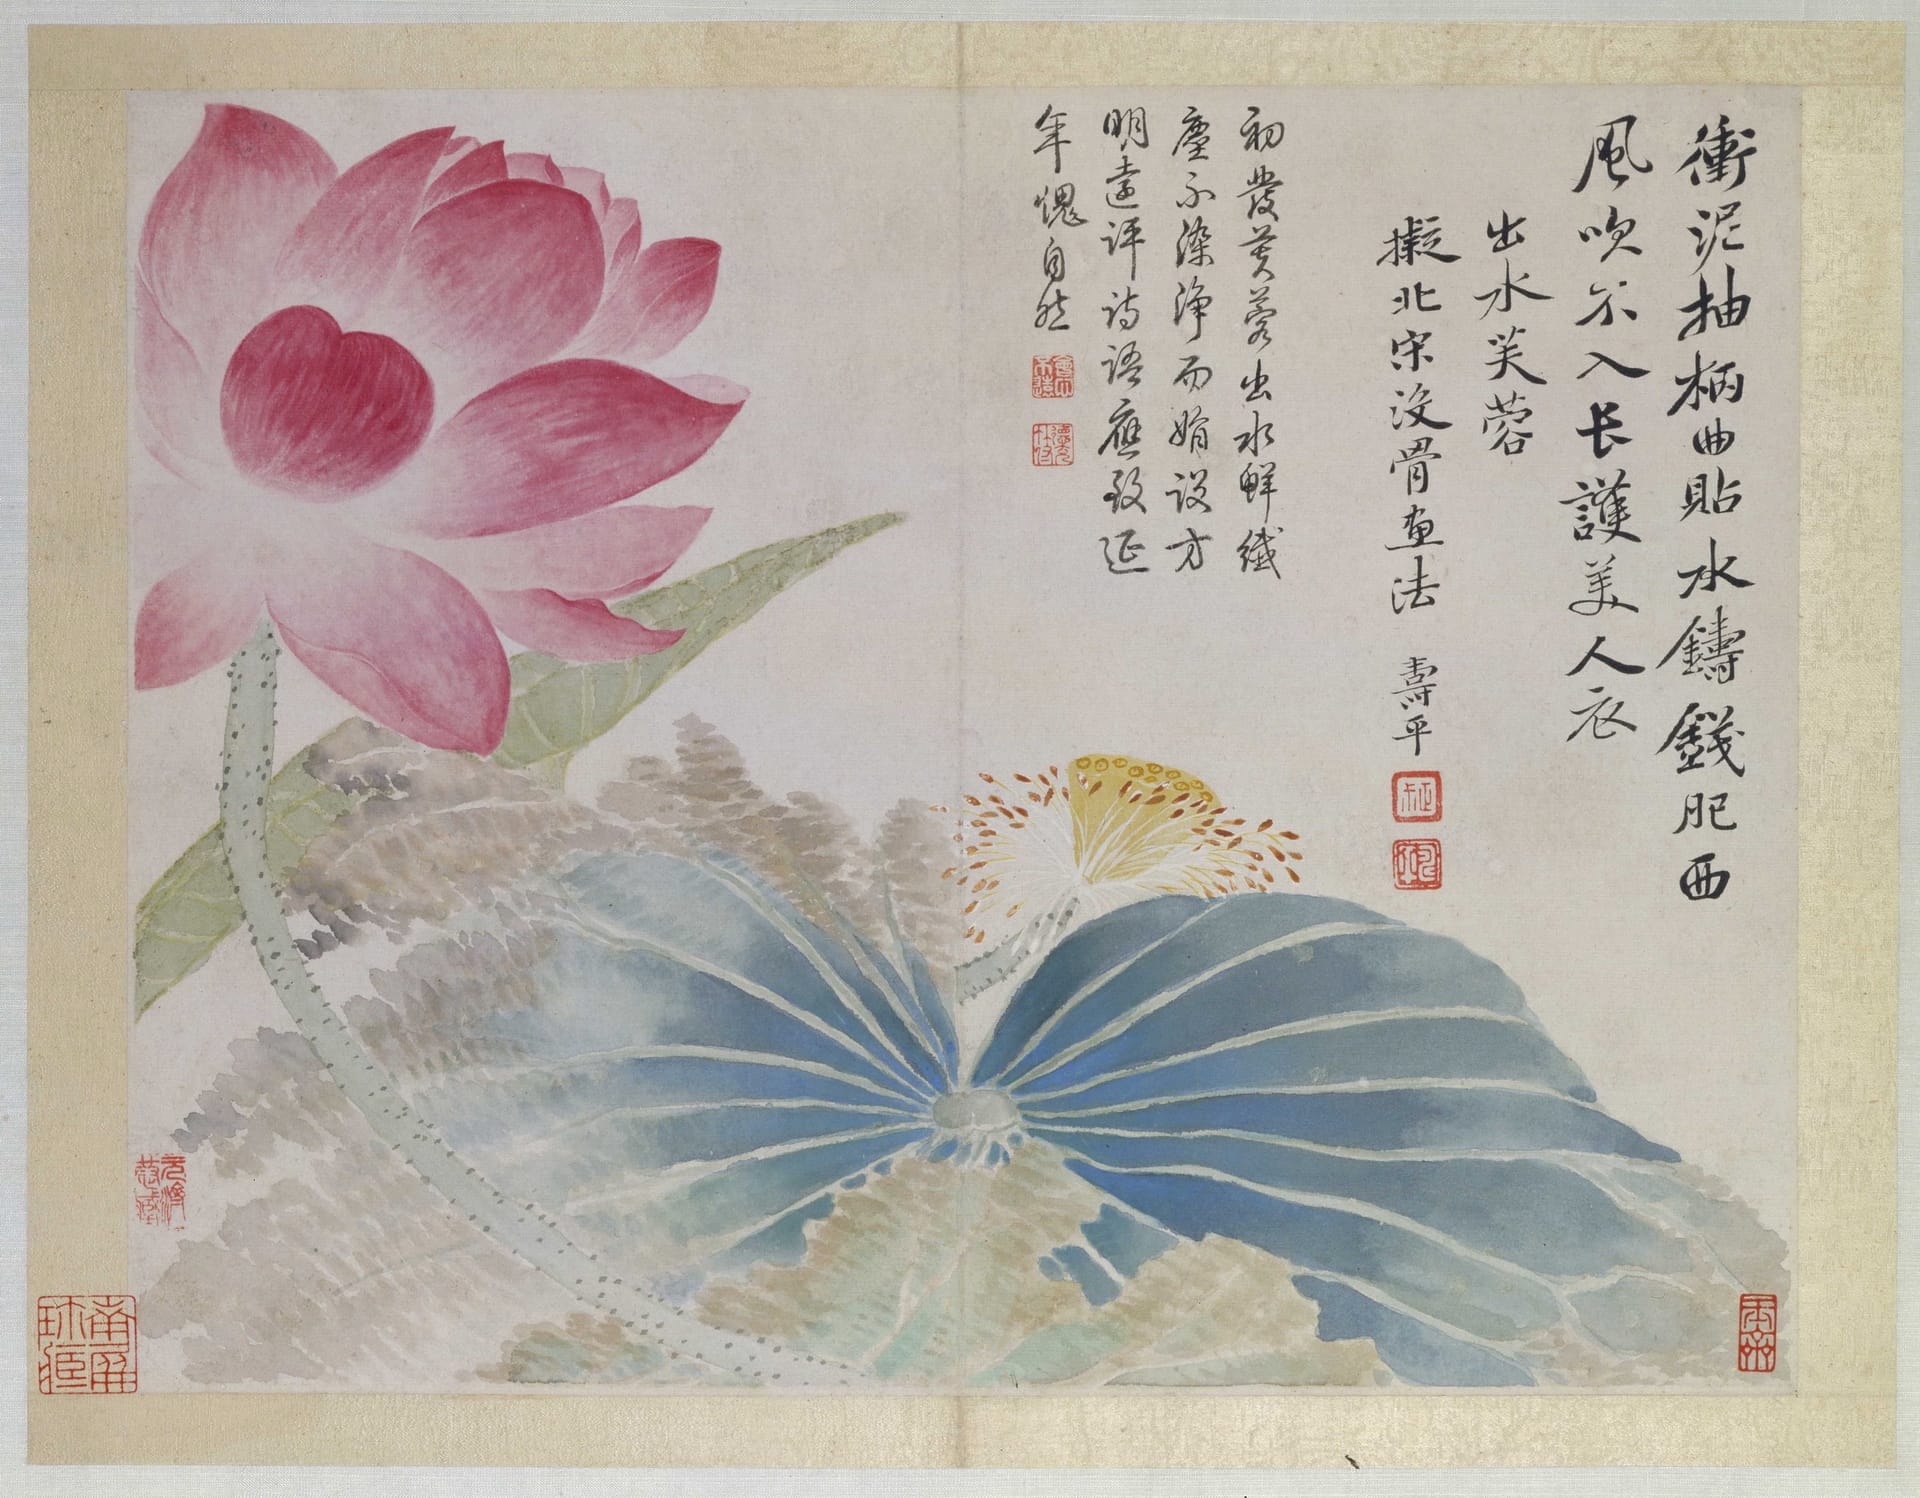 衝泥抽柄曲貼水鑄錢肥西
風吹不入长護美人衣
出水芙蓉
擬北宋没骨畫法 壽平
初發芙蓉出水鮮纖
塵不染淨而娟設方
明遠評詩語應致延
年愧自然